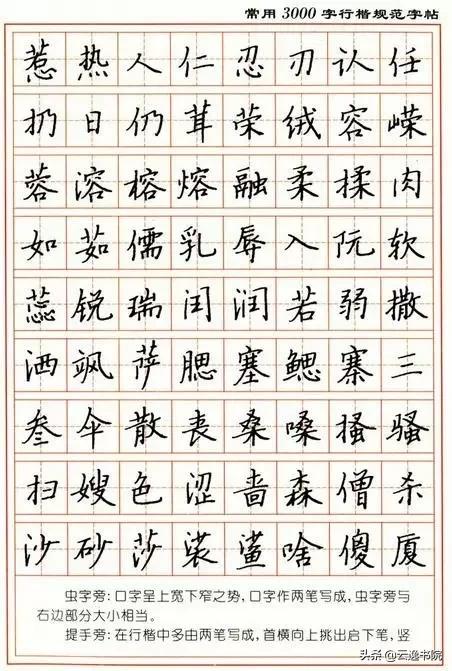 常用3000字行楷规范字帖
惹热人仁忍刃认任
扔日仍茸荣绒容嵘
蓉溶榕熔融柔揉肉
如茹儒乳辱入阮软
蕊锐瑞闰润若弱撒
洒飒萨腮塞鳃寨三
叁伞散丧桑嗓搔骚
扫嫂色涩啬森僧杀
沙砂莎裟鲨啥傻厦
虫字旁:口字呈上宽下窄之势,口字作两笔写成,虫字旁与
右边部分大小相当。
提手旁:在行楷中多由两笔写成,首横向上挑出启下笔,竖
头条@云逸书院